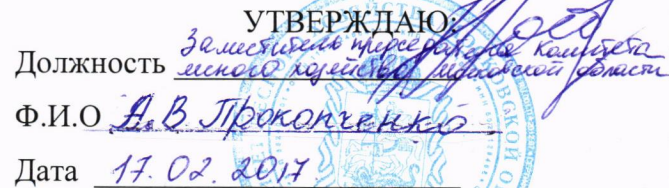 УТВЕРЖДАЮ:
Заместитель председателя Комитета
Должность лесного хозяйства Московской области
Ф.И.О А.В Прокопченко
Дата 17.02.2017